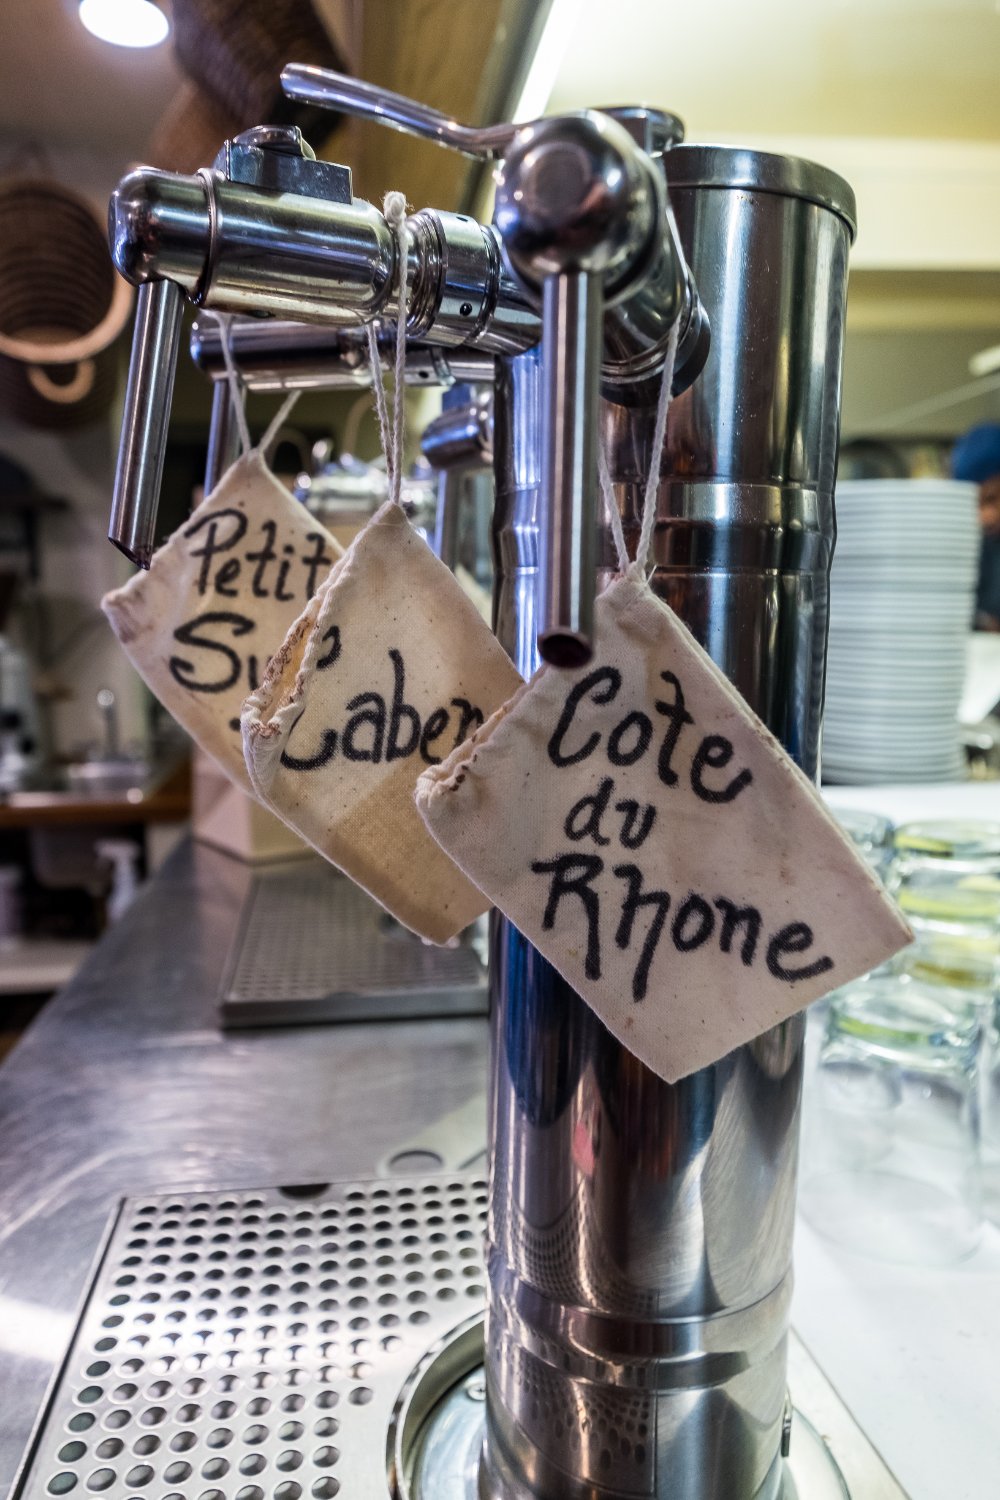 Petit
Caben
Cote
du
Rhone